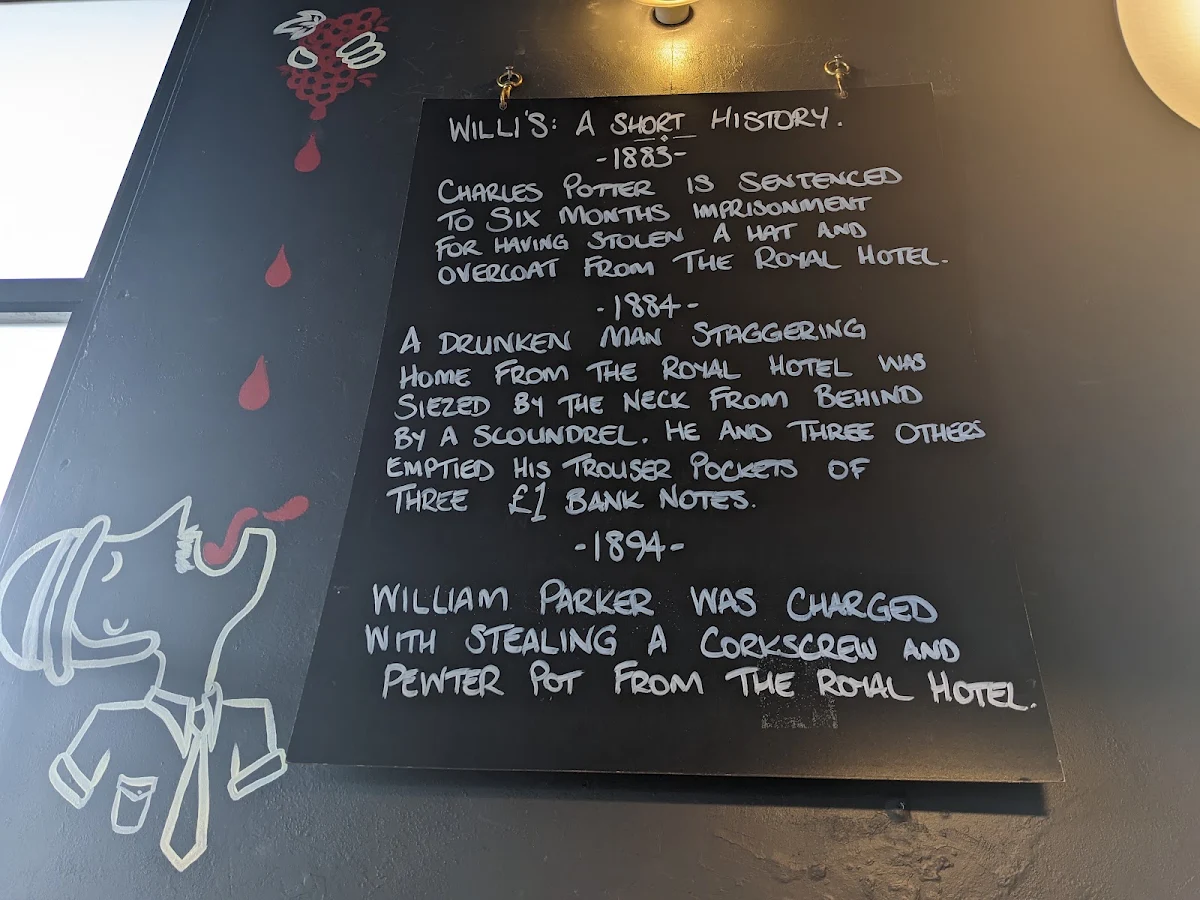 WILLI'S: A SHORT HISTORY.
-1883-
CHARLES POTTER IS SENTENCED
TO SIX MONTHS IMPRISONMENT
FOR HAVING STOLEN A HAT AND
OVERCOAT FROM THE ROYAL HOTEL.
-1884-
A DRUNKEN MAN STAGGERING
HOME FROM THE ROYAL HOTEL WAS
SIEZED BY THE NECK FROM BEHIND
BY A SCOUNDREL. HE AND THREE OTHERS
EMPTIED HIS TROUSER POCKETS OF
THREE £1 BANK NOTES.
-1894-
WILLIAM PARKER WAS CHARGED
WITH STEALING A CORKSCREW AND
PEWTER POT FROM THE ROYAL HOTEL.